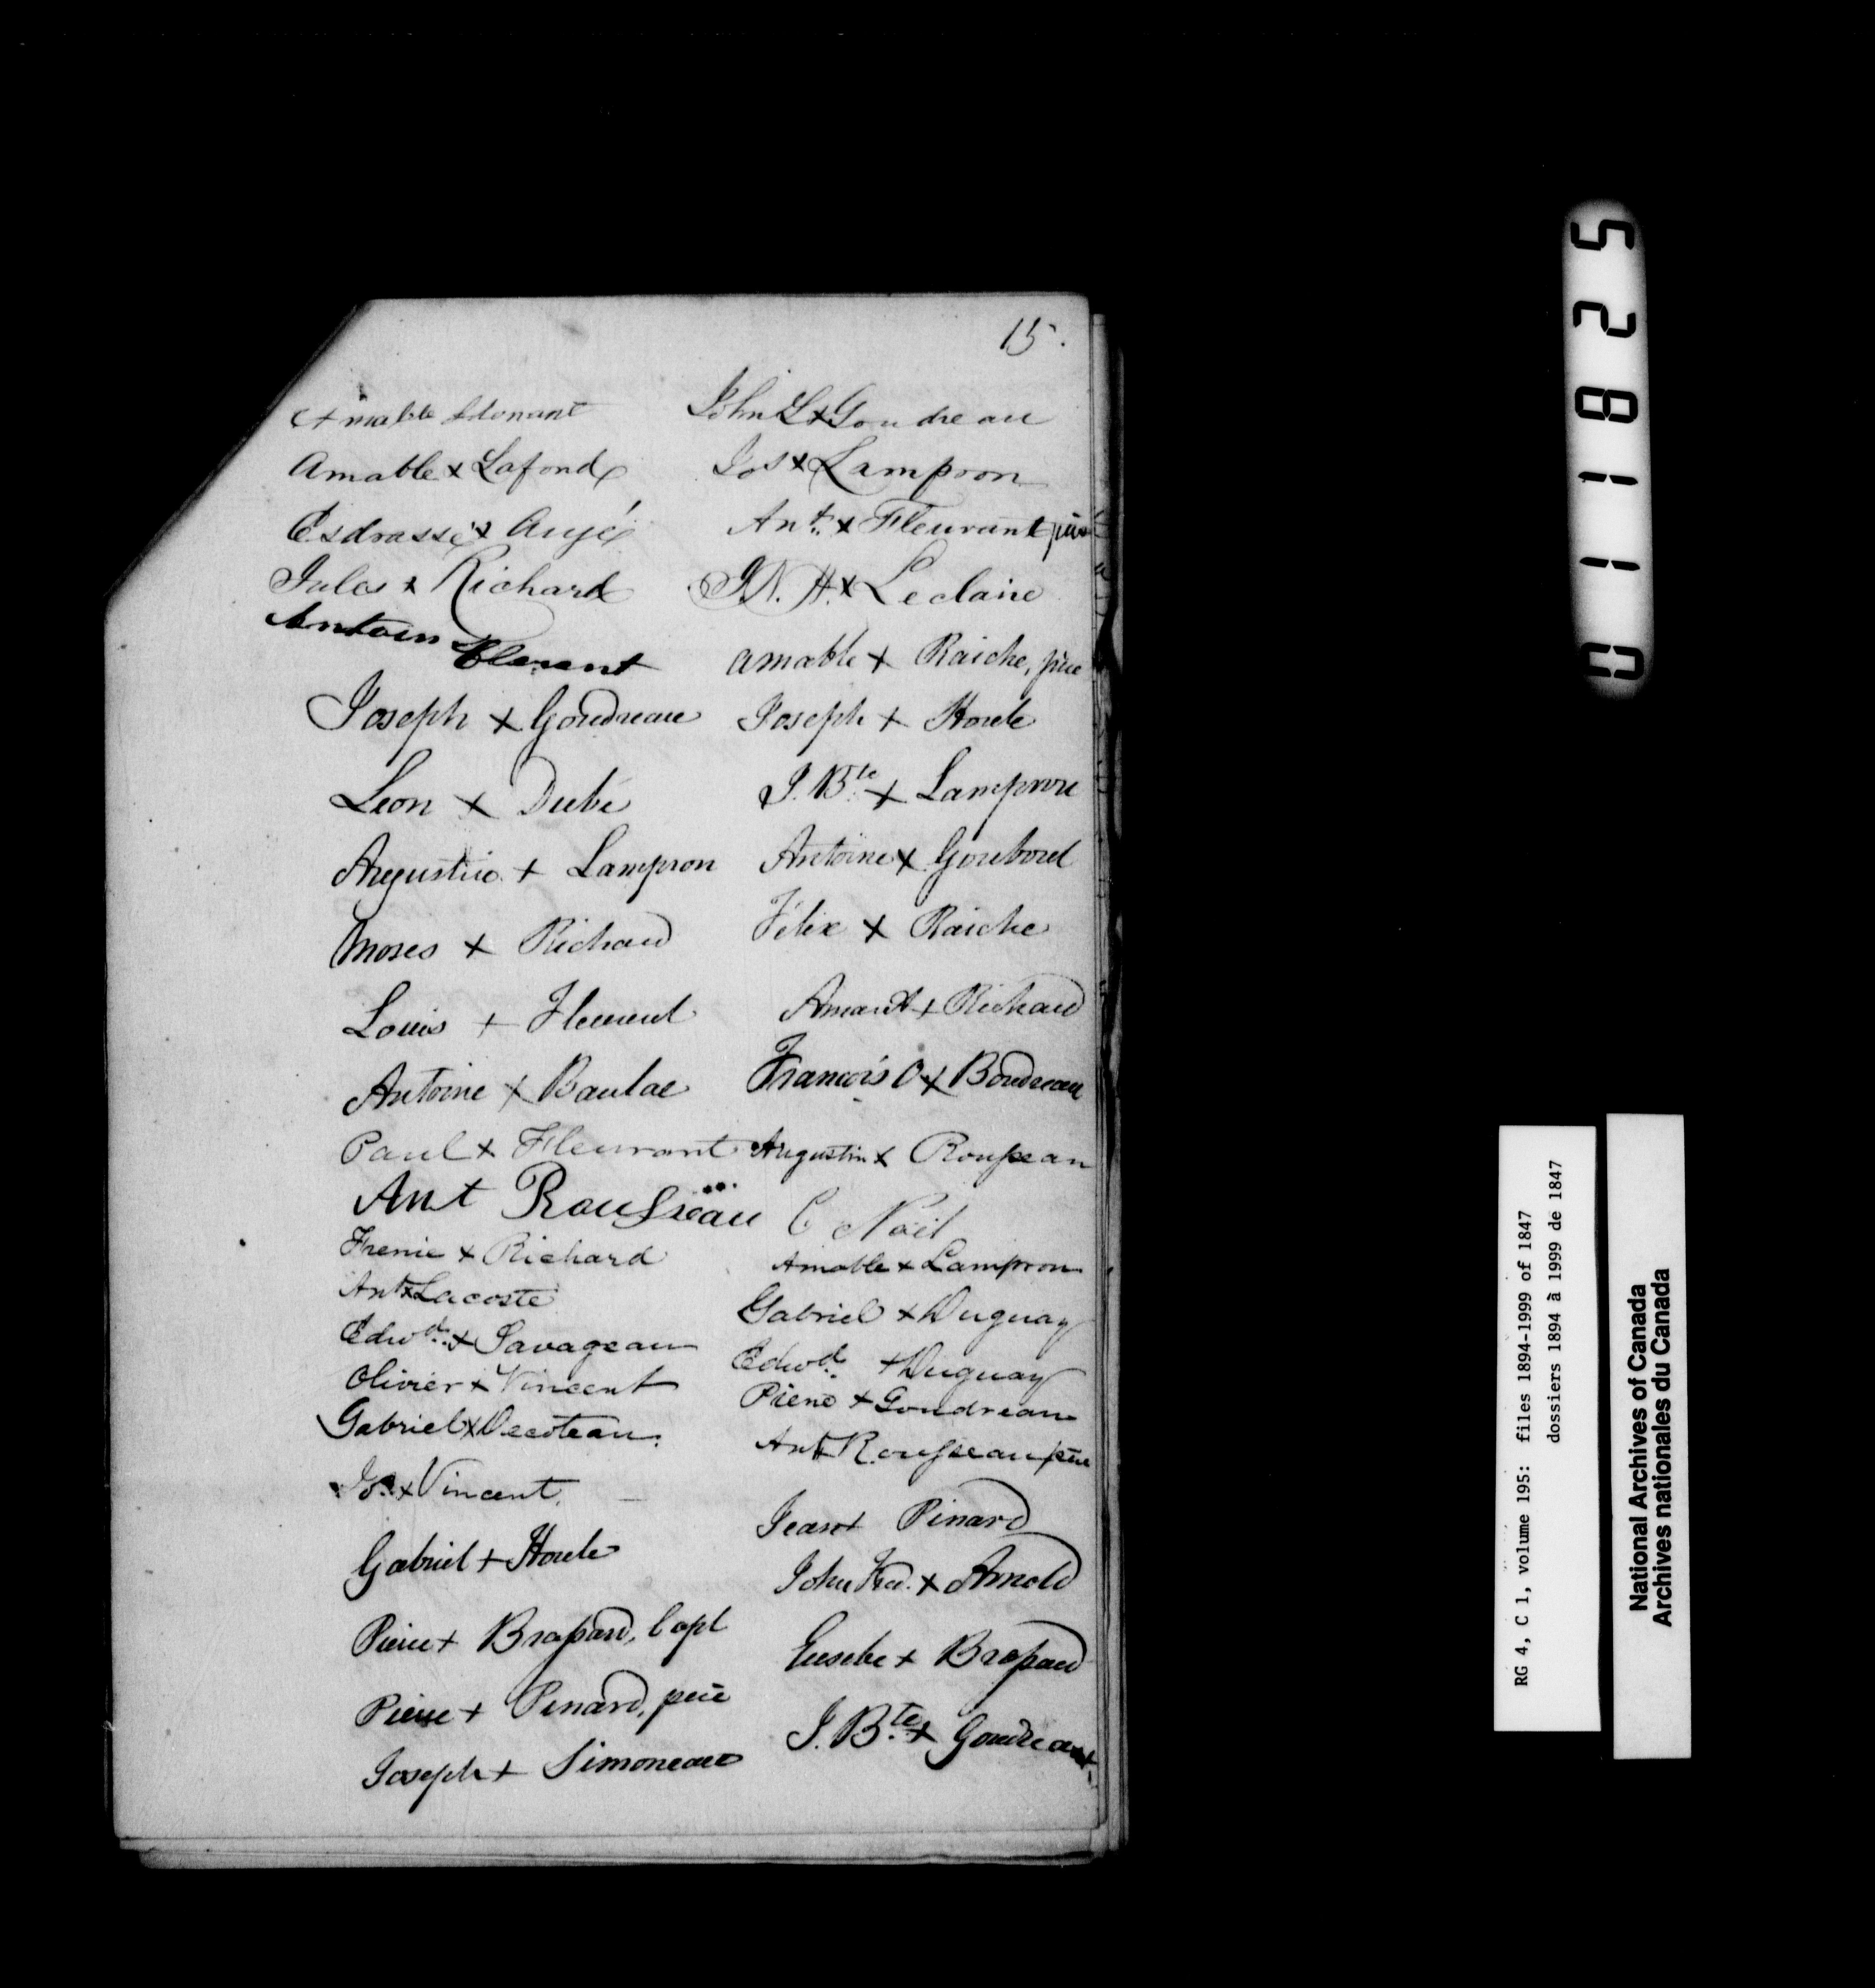 15.
Amable
Amable x Lafond
Esdrasse x Augé
Jules x Richard
Antoin
Joseph x Goudreau
Leon x Dubé
Augustin x Lampron
Moses x Richard
Louis + Fleurent
Antoine x Baulac
Paul x Fleurant
Ant Rousseau
Frenie x Richard
Ant x Lacoste
Edwd. x Savageau
Olivier x Vincent
Gabriel x Decoteau.
Jos. x Vincent.
Gabriel + Houle
Pierre + Brassard, Capt
Pierre + Pinard, père
Joseph + Simoneau
John L x Goudreau
Jos x Lampron
Ant. x Fleurant
J.N. H. x Leclaire
Amable + Raiche, père
Joseph + Houle
J. Bte. + Lampron
Antoine x Goubord
Félix x Raiche
Amant + Richard
François O x Boudreau
Augustin x Rousseau
C Noël
Amable x Lampron
Gabriel x Duguay
Edwd. + Duguay
Pierre + Goudreau
Ant Rousseau père
Jean + Pinard
John Fred. x Arnold
Eusebe + Brassard
J. Bte. x Goudreau
011825
RG 4, C 1, volume 195: files 1894-1999 of 1847
dossiers 1894 à 1999 de 1847
National Archives of Canada
Archives nationales du Canada